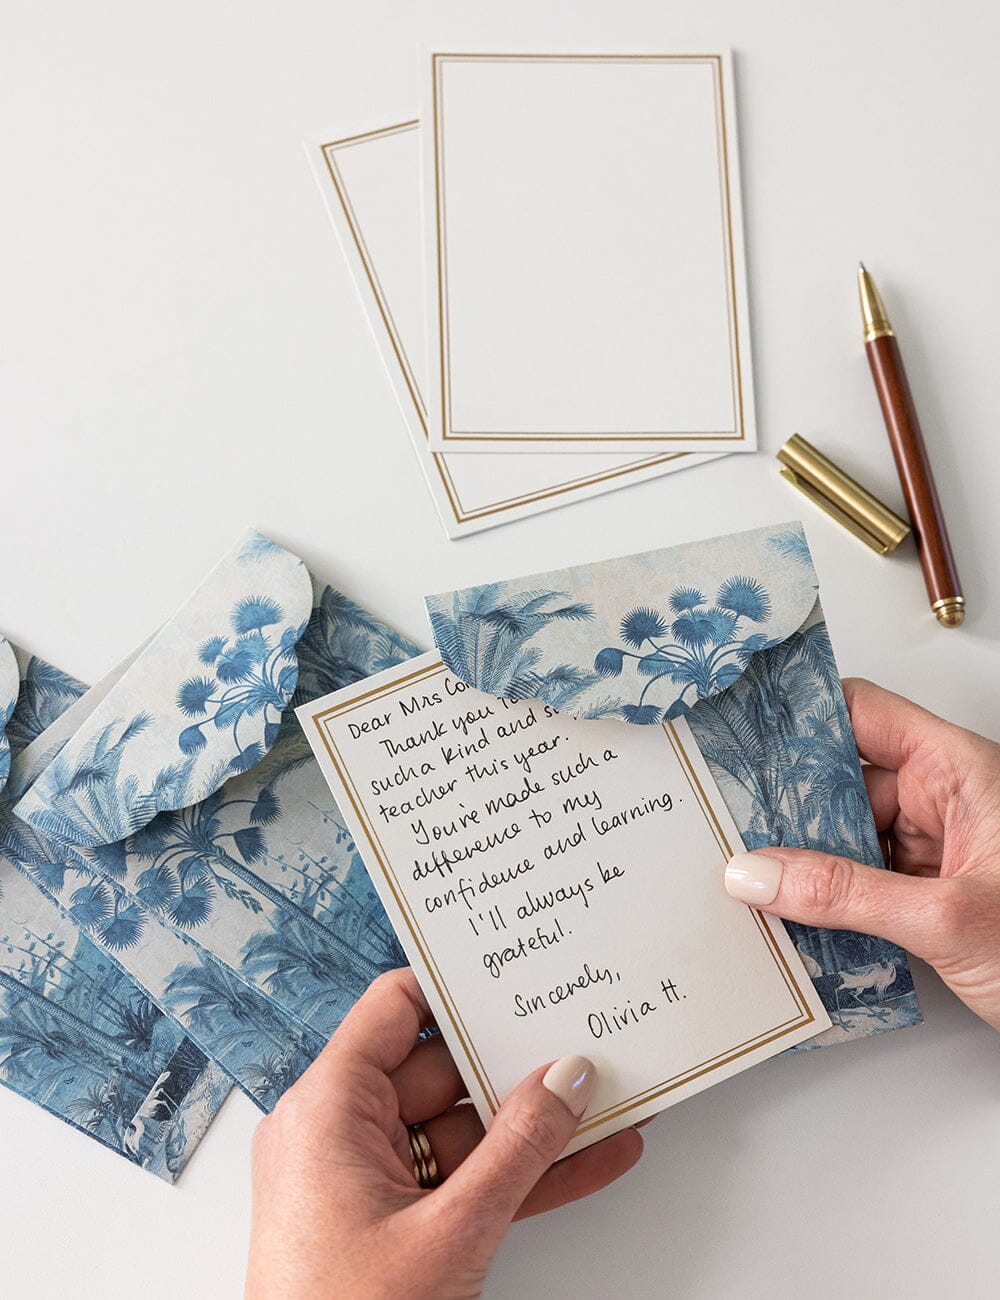 Dear Mrs Co
Thank you
such a kind and
teacher this year.
You've made such a
difference to my
confidence and learning.
I'll always be
grateful.
Sincerely,
Olivia H.